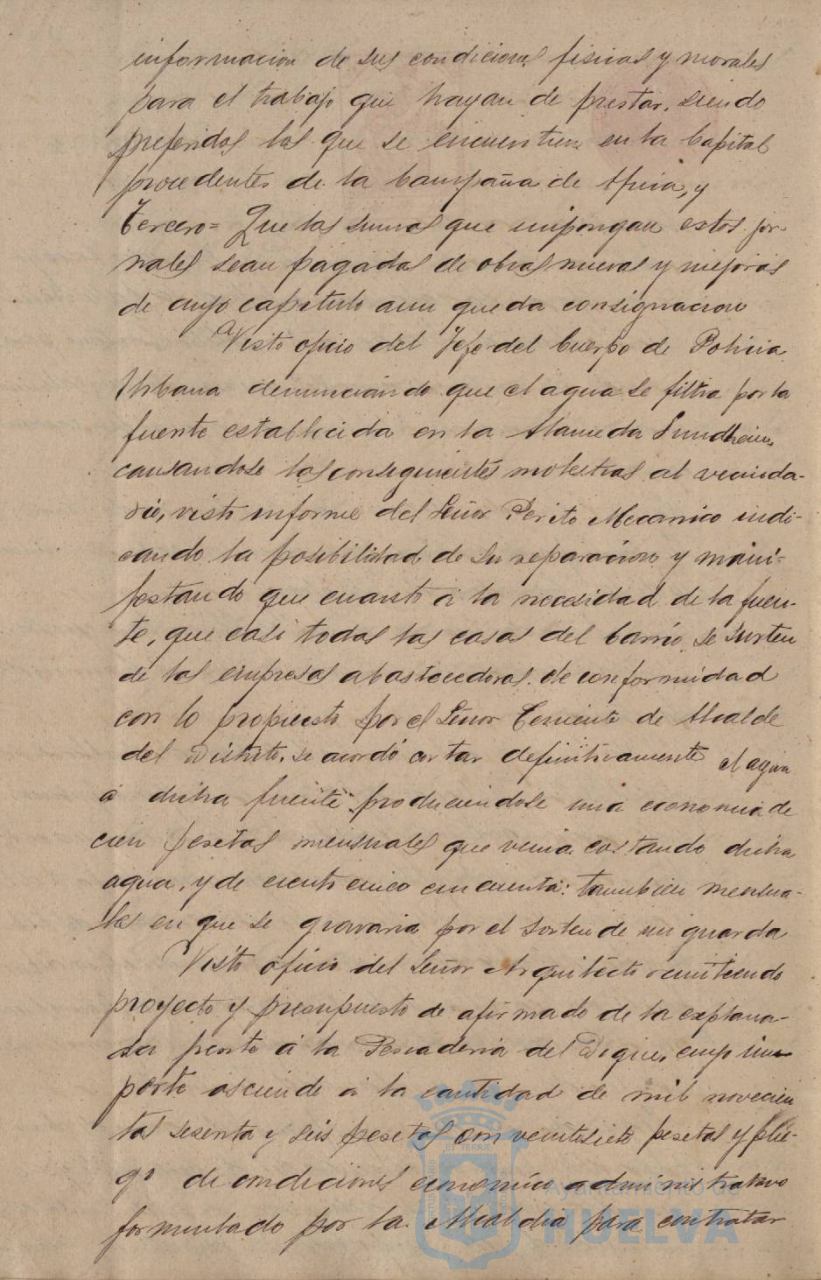 informacion de sus condiciones fisicas y morales
para el trabajo que hayan de prestar, siendo
preferidos los que se encuentren en la Capital
procedentes de la Campaña de Africa, y
Tercero= Que las sumas que impongan estos jor-
nales sean pagadas de obras nuevas y mejoras
de cuyo capitulo aun queda consignacion
Visto oficio del Jefe del Cuerpo de Policia
Urbana denunciando que el agua se filtra por la
fuente establecida en la Alameda Sundheim,
causandose las consiguientes molestias al vecinda-
rio, visto informe del Señor Perito Mecanico indi-
cando la posibilidad de su reparacion y mani-
festando que cuanto á la necesidad de la fuen-
te, que casi todas las casas del barrio se surten
de las empresas abastecedoras. de conformidad
con lo propuesto por el Señor Teniente de Alcalde
del Distrito, se acordó cortar definitivamente el agua
á dicha fuente produciendose una economia de
cien pesetas mensuales que venia costando dicha
agua, y de ciento cinco cincuenta: tambien mensua-
les en que se gravaria por el sosten de un guarda
Visto oficio del Señor Arquitecto remitiendo
proyecto y presupuesto de afirmado de la explana-
da frente á la Pescaderia del Dique, cuyo im-
porte asciende á la cantidad de mil novecien
tas sesenta y seis pesetas con veintisiete pesetas y plie-
go de condiciones económico administrativo
formulado por la Alcaldia para contratar
Ayuntamiento de
HUELVA